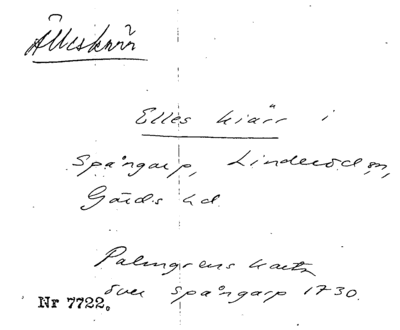 Älleskärr
Elles kiärr i
Spångarp, Linderöd sn,
Gärds hd
Palmgrens karta
över Spångarp 1730.
Nr 7722.